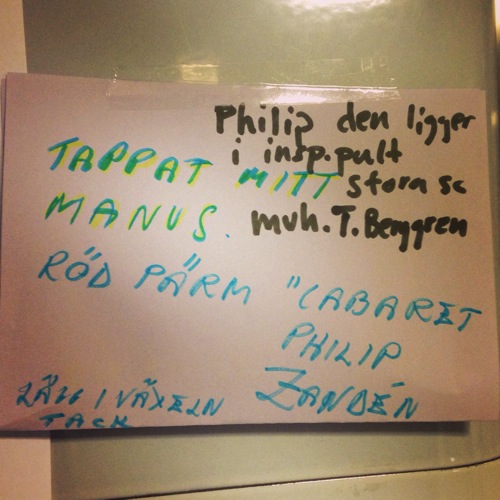 Philip den ligger
i insp.pult
stora sc
mvh. T. Berggren
TAPPAT MITT
MANUS.
RÖD PÄRM "CABARET
PHILIP
ZANDÉN
LÄGG I VÄXELN
TACK